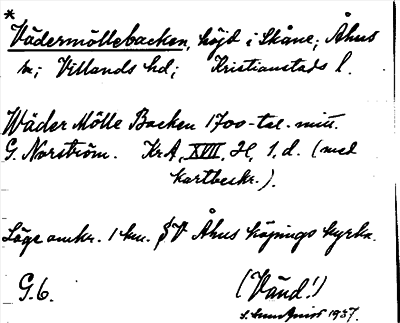 *
Vädermöllebacken, höjd i Skåne; Åhus
sn; Villands hd; Kristianstads l.
Wäder Mölle Backen 1700-tal. mitt.
G. Norström. KrA, XVII, H, 1, d. (med
kartbeskr.).
Läge omkr. 1 km. SV Åhus köpings kyrka.
G. 6. (Vänd!)
1937.